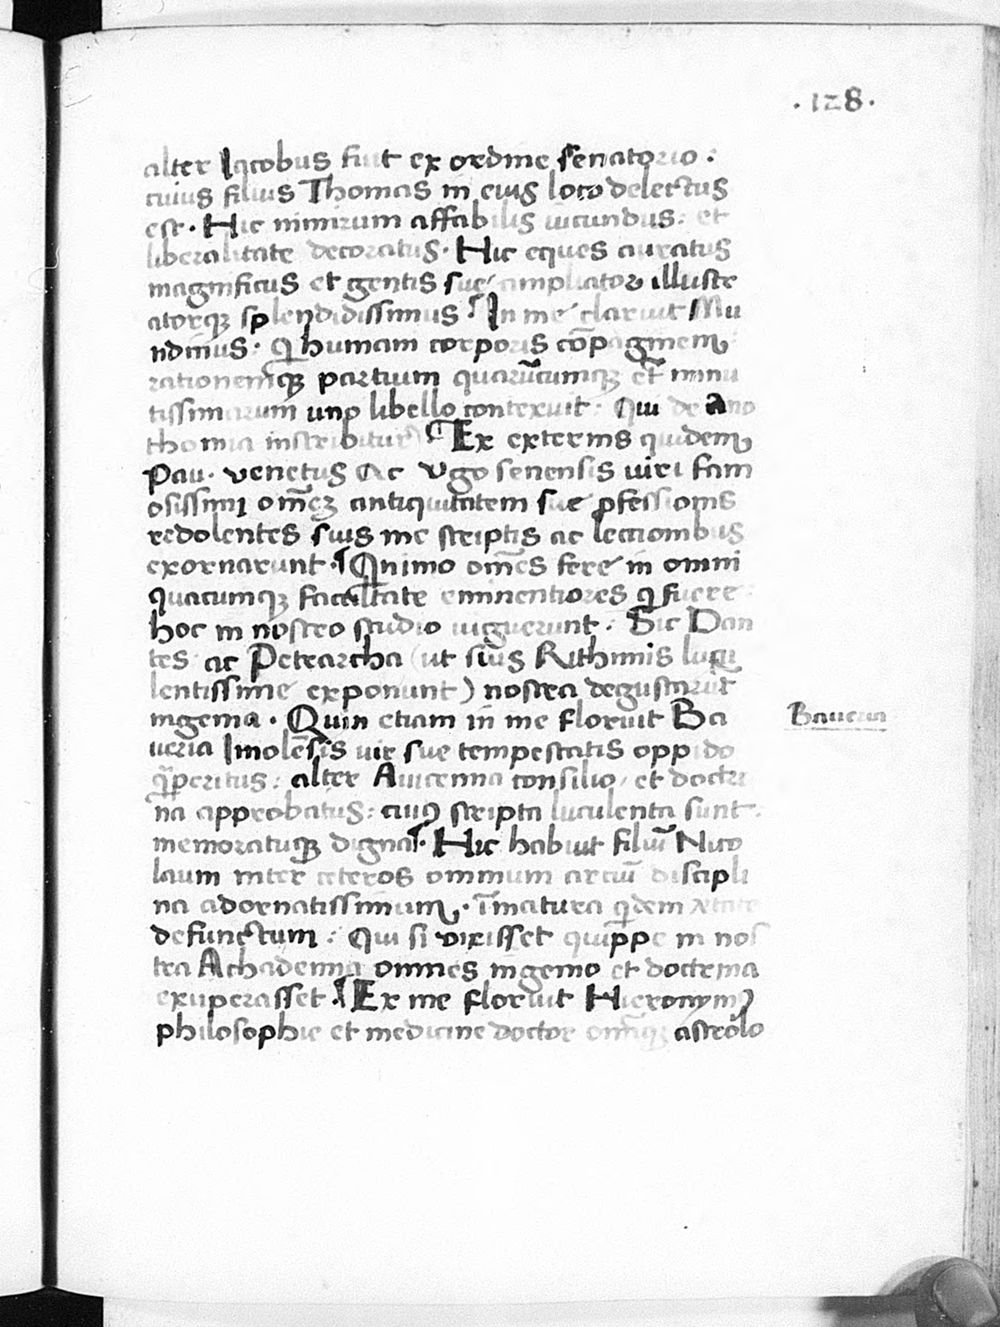 .128.
alter Iacobus fuit ex ordine senatorio :
cuius filius Thomas in eius loco delectus
est . Hic nimirum affabilis iucundus : et
liberalitate decoratus . Hic eques auratus
magnificus et gentis sue ampliator illustr
atorqȝ splendidissimus ¶ In me claruit Mu
ndinus : Qi humani corporis cōpaginem
rationemqȝ partium quarūcumqȝ et minu
tissimarum uno libello contexuit : Qui de Ano
thomia inscribitur ¶ Ex externis quidem
Pau . venetus Ac Vgo senensis uiri fam
osissimi om̄eȝ antiquitatem sue ꝓfessionis
redolentes suis me scriptis ac lectionibus
exornarunt . ¶ Qnimo om̄es fere in omni
quacumqȝ facultate eminentiores q fuere
hoc in nostro studio uiguerunt . Sic Dan
tes ac Petrarcha ( ut suis Rithmis lucu
lentissime exponunt ) nostra degustarūt
ingenia . Quin etiam in me floruit Ba
ueria Imolēsis uir sue tempestatis oppido
q̄ꝑeritus : alter Auicenna consilio , et doctri
na approbatus : cuiꝰ scripta luculenta sunt .
memoratuqȝ digna ¶ . Hic habuit filiū Nico
laum inter ceteros omnium artiū discipli
na adornatissimum . Īmatura qidem ætate
defunctum : Qui si vixisset quippe in nos
tra Achademia omnes ingenio et doctrina
exuperasset . ¶ Ex me floruit Hieronymꝰ
philosophie et medicine doctor om̄iqȝ astrolo
Baueria